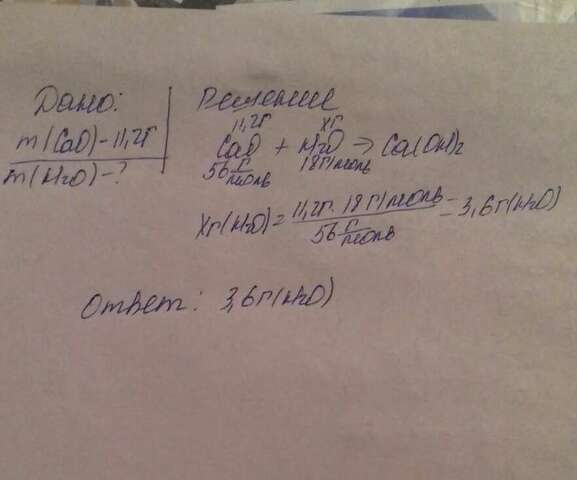 Дано:
m(CaO)-11,2г
m(H2O)-?
Решение
11,2г xг
CaO + H2O → Ca(OH)2
56 г/моль 18г/моль
Xг(H2O) = 11,2г · 18 г/моль / 56 г/моль = 3,6г(H2O)
Ответ: 3,6г(H2O)